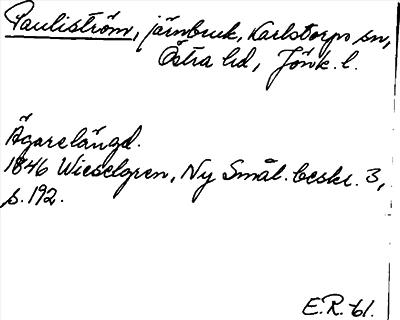 Pauliström, järnbruk, Karlstorps sn,
Östra hd, Jönk. l.
Ägarelängd.
1846 Wieselgren, Ny Smål. beskr. 3,
s. 192.
E.R. -61.